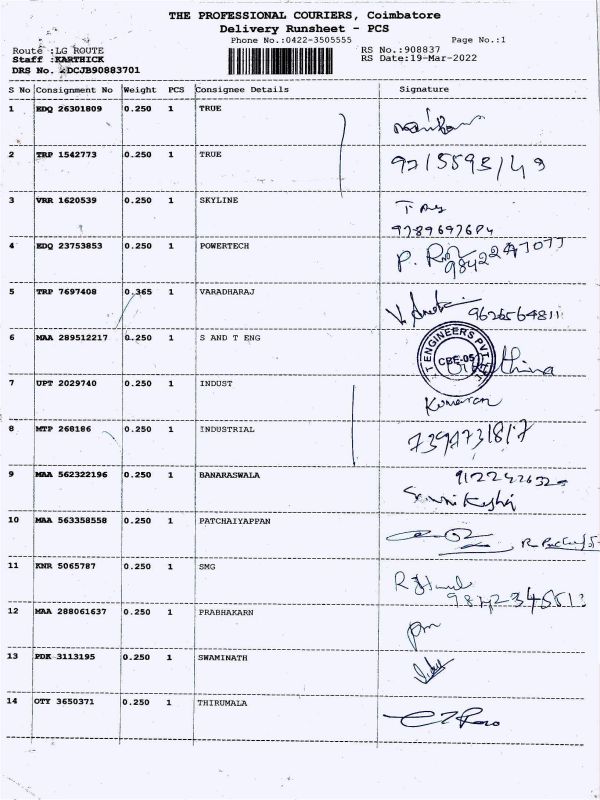 THE PROFESSIONAL COURIERS, Coimbatore
Delivery Runsheet - PCS
Phone No.:0422-3505555
Page No.:1
Route :LG ROUTE
RS No.:908837
Staff :KARTHICK
RS Date:19-Mar-2022
DRS No. :DCJB90883701
S No Consignment No Weight PCS Consignee Details Signature
1 EDQ 26301809 0.250 1 TRUE
2 TRP 1542773 0.250 1 TRUE
3 VRR 1620539 0.250 1 SKYLINE
9789697684
4 EDQ 23753853 0.250 1 POWERTECH
5 TRP 7697408 0.365 1 VARADHARAJ
9626564811
6 MAA 289512217 0.250 1 S AND T ENG
T ENGINEERS PVT
CBE-05
7 UPT 2029740 0.250 1 INDUST
Kumaran
8 MTP 268186 0.250 1 INDUSTRIAL
9 MAA 562322196 0.250 1 BANARASWALA
10 MAA 563358558 0.250 1 PATCHAIYAPPAN
11 KNR 5065787 0.250 1 SMG
12 MAA 288061637 0.250 1 PRABHAKARN
13 PDK 3113195 0.250 1 SWAMINATH
14 OTY 3650371 0.250 1 THIRUMALA